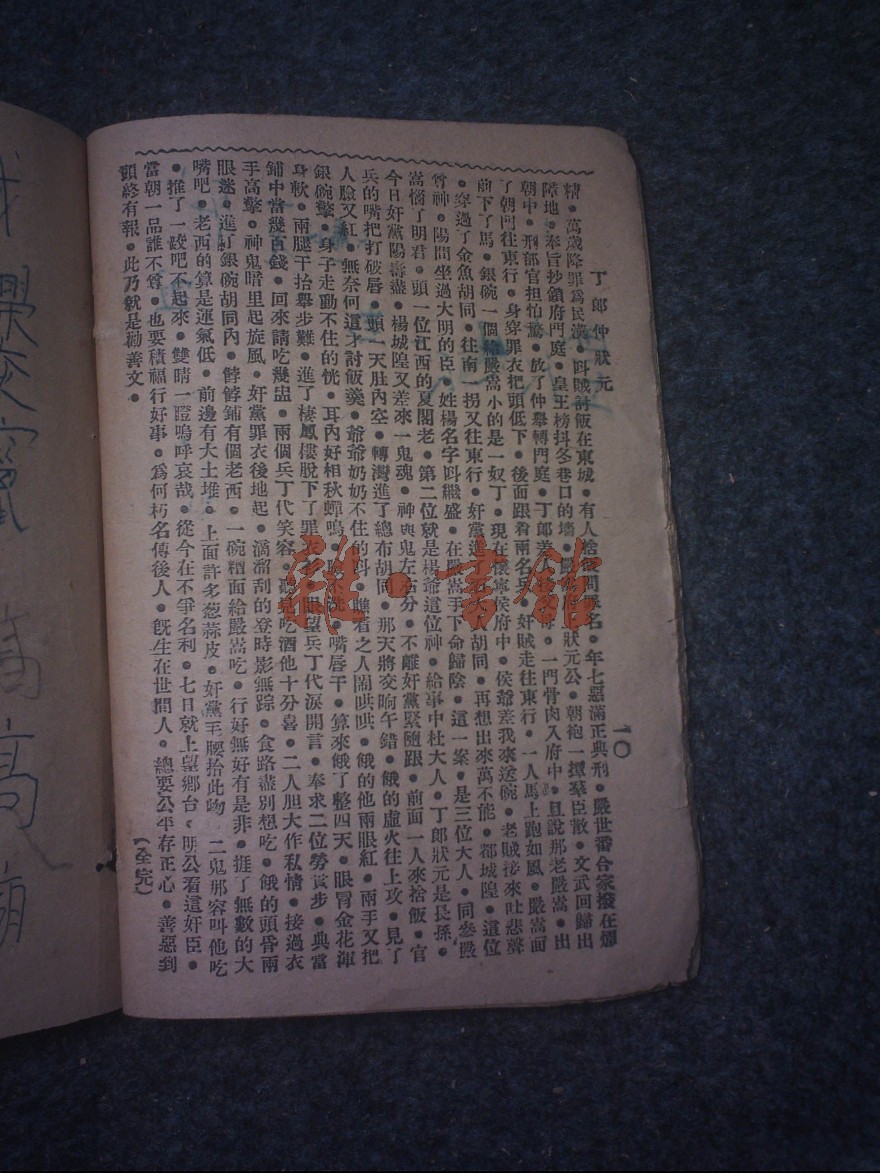 丁郎仲狀元
一〇
精•萬歲降罪爲民漢•呌賊討飯在東城•有人捨他問罪名•年七惡滿正典刑•嚴世番合家撥在煙
障地•奉旨抄鎖府門庭•皇王榜抖冬巷口的墻•狀元公•朝袍一撢羣臣散•文武回歸出
朝中•刑部官担怕驚•放了仲舉轉門庭•丁郎•一門骨肉入府中•且說那老嚴嵩•出
了朝門往東行•身穿罪衣把頭低下•後面跟着兩名兵•奸賊走往東行•一人馬上跑如風•嚴嵩面
前下了馬•銀碗一個給嚴嵩小的是一奴丁•現在懷寧侯府中•侯爺差我來送碗•老賊接來吐悲聲
•穿過了金魚胡同•往南一拐又往東行•奸黨進胡同•再想出來萬不能•都城隍•這位
尊神•陽間坐過大明的臣•姓楊名字呌繼盛•在嚴嵩手下命歸陰•這一案•是三位大人•同參嚴
嵩惱了明君•頭一位江西的夏閣老•第二位就是楊爺這位神•給事中杜大人•丁郎狀元是長孫•
今日奸黨陽壽盡•楊城隍又差來一鬼魂•神與鬼左右分•不離奸黨緊隨跟•前面一人來捨飯•官
兵的嘴把打破唇•頭一天肚內空•轉灣進了總布胡同•那天將交晌午錯•餓的虛火往上攻•見了
人臉又紅•無奈何這才討飯羹•爺爺奶奶不住的呌•瞧着之人鬧哄哄•餓的他兩眼紅•兩手又把
銀碗擎•身子走動不住的恍•耳內好相秋蟬鳴•嘴唇干•算來餓了整四天•眼冒金花渾
身軟•兩腿干抬舉步難•進了棲鳳樓脫下了罪衣衫•眼望兵丁代淚開言•奉求二位勞貴步•典當
鋪中當幾百錢•回來請吃幾盅•兩個兵丁代笑容•聽見吃酒他十分喜•二人胆大作私情•接過衣
手高擎•神鬼暗里起旋風•奸黨罪衣後地起•滴溜刮的登時影無踪•食路盡別想吃•餓的頭昏兩
眼迷•進了銀碗胡同內•餑餑鋪有個老西•一碗麵面給嚴嵩吃•行好無好有是非•捱了無數的大
嘴吧•老西的算是運氣低•前邊有大土堆•上面許多葱蒜皮•奸黨毛腰拾此吻•二鬼那容叫他吃
•推了一跤吧不起來•雙睛一瞪嗚呼哀哉•從今在不爭名利•七日就上望鄉台•明公看這奸臣•
當朝一品誰不尊•也要積福行好事•爲何朽名傳後人•旣生在世間人•總要公平存正心•善惡到
頭終有報•此乃就是勸善文•
(全完)
雜•書館